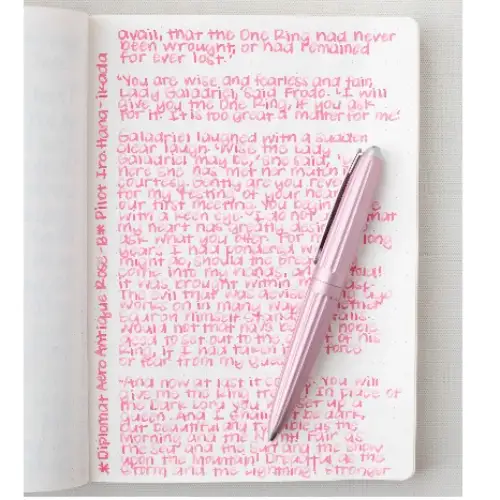 avail, that the One Ring had never
been wrought, or had remained
for ever lost.'
'You are wise and fearless and fair,
Lady Galadriel,' said Frodo. 'I will
give you the One Ring, if you ask
for it. It is too great a matter for me.'
Galadriel laughed with a sudden
clear laugh. 'Wise the Lady
Galadriel may be,' she said,
here she has met her match in
courtesy. Gently are you
for my testing of your
our first meeting. You begin
with a keen eye. I do not that
my heart has greatly
ask what you offer. For long
years, I had pondered
might do, should the Great
come into my hands, and
it was brought within
The evil that was devised
works on in many
Sauron himself stands
would not that have been a noble
deed to set out to the of his
Ring, if I had taken it force
or fear from my
'And now at last it You will
give me the Ring In place of
the Dark Lord you set up a
Queen. And I shall be dark,
but beautiful and as the
Morning and the Fair as
the Sea and the Sun and the Snow
upon the Mountain! Dreadful as the
Storm and the Lightning! Stronger
*Diplomat Aero Antique Rose -B# Pilot Iro Hana-ikada